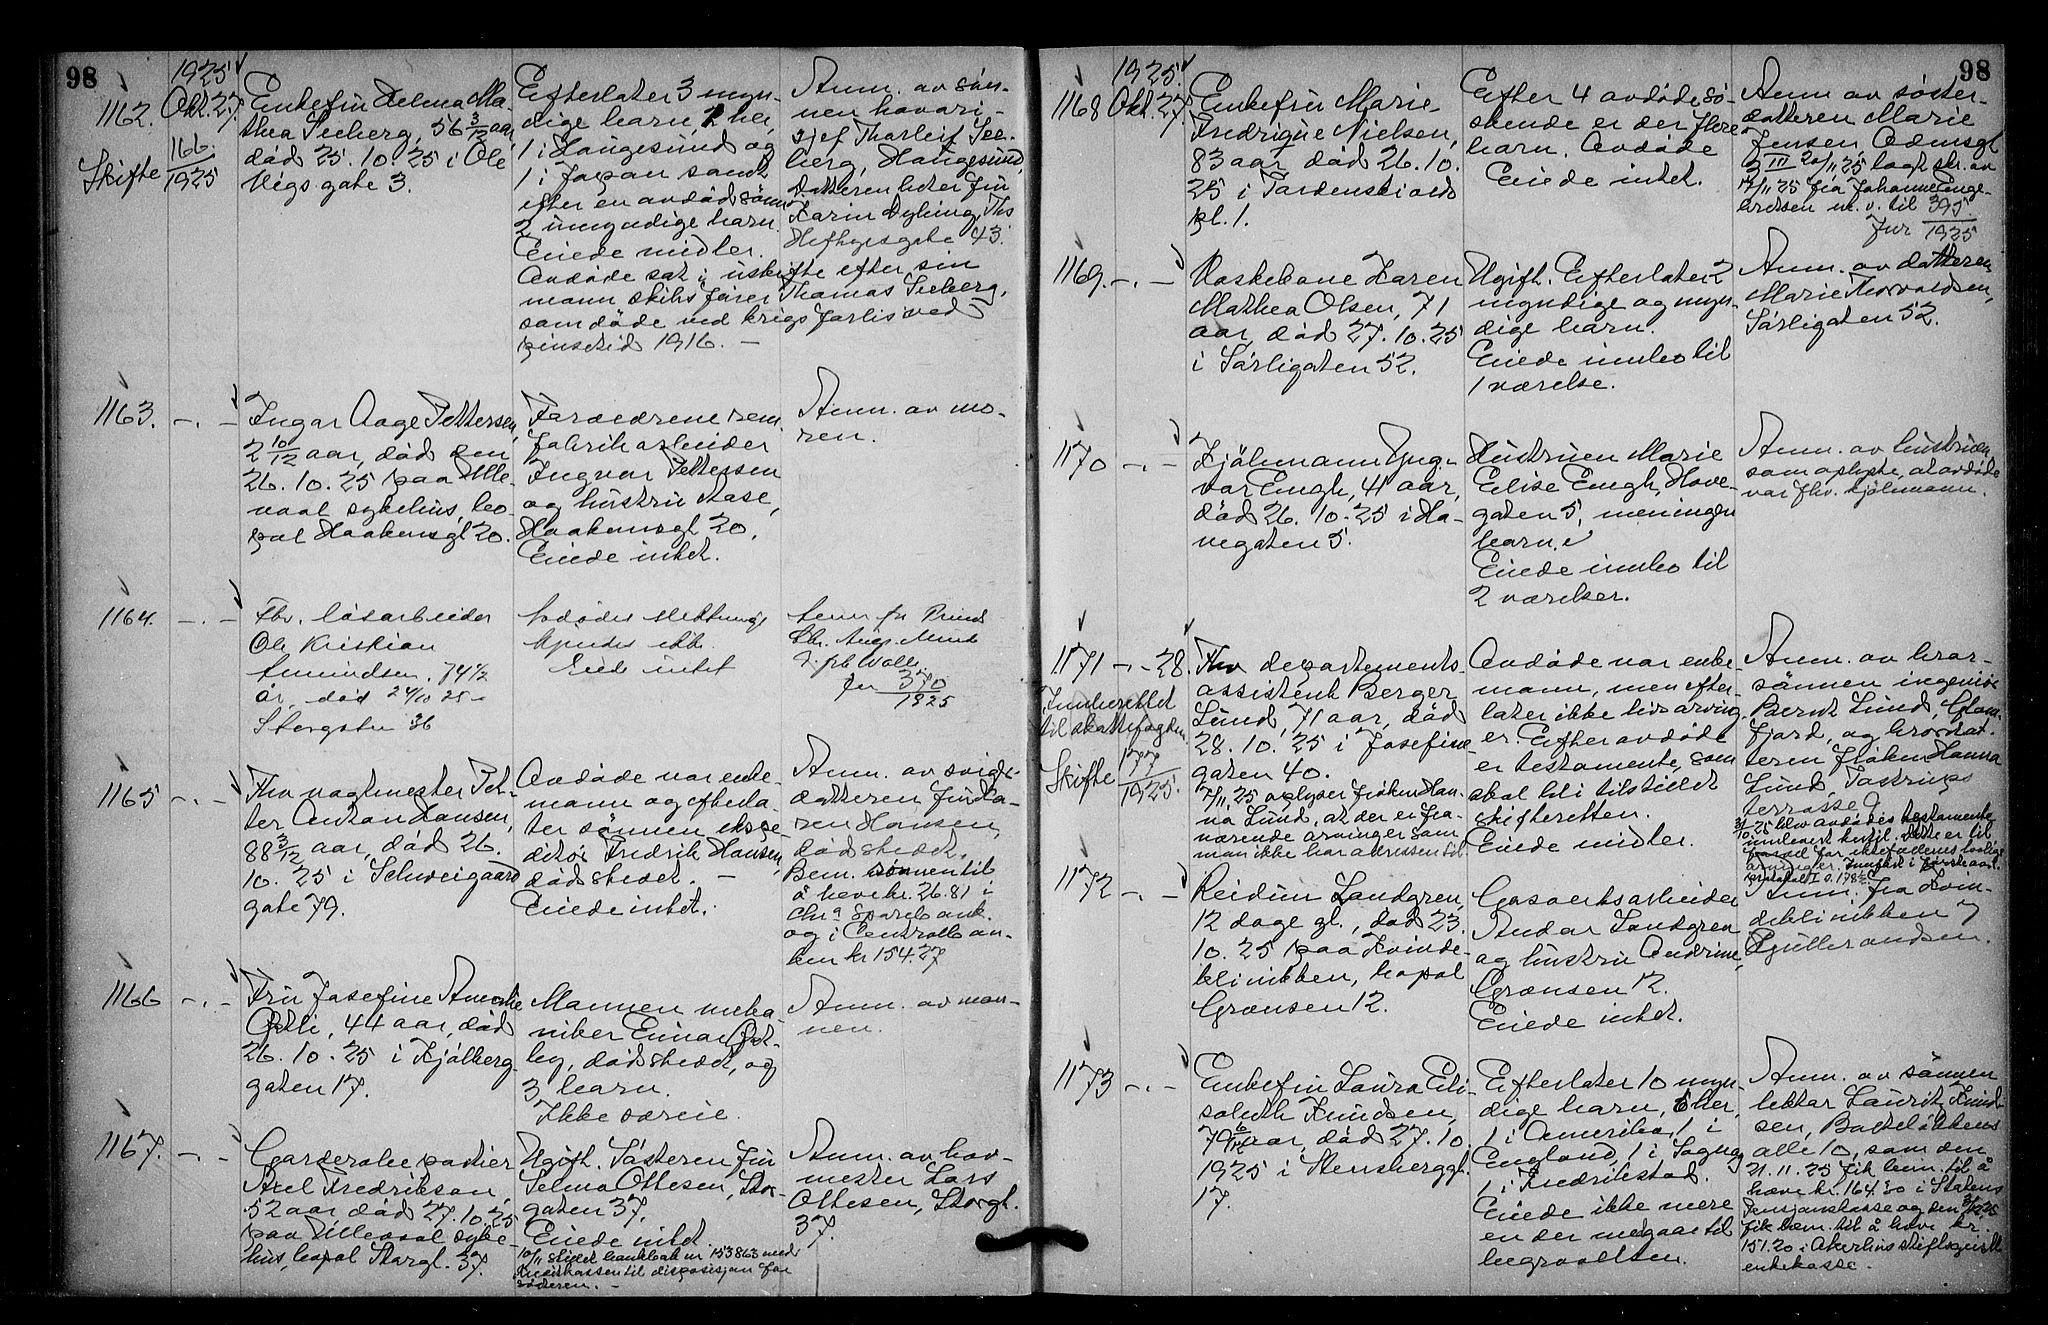 98
1925
1162. Okt. 27.
Skifte 166.
1925
Enkefru Helma Ma-
thea Seeberg, 56 3/12 aar,
død 25.10.25 i Ole
Vigs gate 3.
Efterlater 3 myn-
dige barn, 1 her,
1 i Haugesund og
1 i Japan samt
efter en avdød sønn
2 umyndige barn.
Eiede midler.
Avdøde sat i uskifte efter sin
mann skibsfører Thomas Seeberg,
som døde ved krigsforlis ved
pinsetid 1916. —
Anm. av søn-
nen havari-
sjef Thorleif See-
berg, Haugesund,
Datteren heter fru
Karin Dyhing, Ths
Heftyesgate 43.
1163. -.-
Ingar Aage Pettersen,
2 10/12 aar, død den
26.10.25 paa Ulle-
vaal sykehus, bo-
pæl Haakonsgt 20.
Forældrene
fabrikarbeider
Ingvar Pettersen
og hustru Aase,
Haakonsgt 20,
Eiede intet.
Anm. av mo-
ren.
1164. -.-
Fhv. løsarbeider
Ole Kristian
Amundsen, 74 1/2
år, død 24/10 25
Storgaten 36
Avdødes slektninge
kjendes ikke.
Eiede intet
Anm. fr
Chr. Aug.
Jnr 370
1925
1165 -.-
Fhv vagtmester Pet-
ter Anton Hansen,
88 3/12 aar, død 26.
10.25 i Schweigaards
gate 79.
Avdøde var enke-
mann og efterla-
ter sønnen ekspe-
ditør Fredrik Hansen,
dødsstedet. —
Eiede intet.
Anm. av sviger-
datteren fru Ka-
ren Hansen,
dødsstedet.
Bem. sønnen til
å heve kr. 26.81 i
Chra Sparebank
og i Centralban-
ken kr 154.27
1166 -.-
Fru Josefine Amalie
Østli, 44 aar, død
26.10.25 i Kjølberg
gaten 17.
Mannen meka-
niker Einar Øst-
by, dødsstedet, og
3 barn.
Ikke særeie.
Anm. av man-
nen.
1167. -.-
Garderobeportier
Axel Fredriksen,
52 aar død 27.10.25
paa Ullevaal syke
hus, bopæl Storgt. 37.
Ugift. Søsteren fru
Selma Ottesen, Stor-
gaten 37,
Eiede intet.
10/11 stillet bankbok nr 153863 med
til disposisjon for
søsteren. —
Anm. av hov-
mester Lars
Ottesen, Storgt.
37.
98
1925.
1168 Okt. 27.
Enkefru Marie
Fredrigue Nielsen,
83 aar, død 26.10.
25 i Tordenskiolds
pl. 1.
Efter 4 avdøde sø-
skende er der flere
barn. Avdøde
Eiede intet.
Anm. av søster-
datteren Marie
Jensen, Odinsgt
3 III 20/11 25 lagt skr. av
12/11 25 fra Johanne Enge-
bretsen m. v. til 395
Jnr 1925
1169. -.-
Vaskekone Karen
Mathea Olsen, 71
aar, død 27.10.25
i Sørligaten 52.
Ugift. Efterlater 2
myndige og myn-
dige barn.
Eiede innbo til
1 værelse.
Anm. av datteren,
Marie Thorvaldsen,
Sørligaten 52.
1170 -.-
Kjøbmann Yng-
var Engh, 41 aar,
død 26.10.25 i Ha-
vegaten 5.
Hustruen Marie
Elise Engh, Have-
gaten 5, men ingen
barn.
Eiede innbo til
2 værelser.
Anm. av hustruen,
som oplyste, at avdøde
var fhv. kjøbmann.
1171 -.- 28.
Innberettet
til skattefogden.
Skifte 177
1925.
Fhv departements-
assistent Berger
Lund, 71 aar, død
28.10.25 i Josefine
gaten 40.
7/11 25 oplyser frøken Han-
na Lund, at der er fra-
værende arvinger som
man ikke har adressen til.
Avdøde var enke-
mann, men efter-
later ikke livsarving
er. Efter avdøde
er testamente, som
skal bli tilstillet
skifteretten.
Eiede midler.
Anm. av bror-
sønnen ingeniør
Bernt Lund, Glom-
fjord, og brordat-
teren frøken Hanna
Lund, Tostrups
terrasse 9
31/10 25 blev avdødes testamente
innlevert hertil. Dette er til
for ektefællenes lovlige
arvinger.
protokol I s. 178
1172 -.-
Reidun Landgren,
12 dage gl., død 23.
10.25 paa Kvinde-
klinikken, bopæl
Grensen 12.
Gasverksarbeider
Andor Landgren
og hustru Andrine,
Grensen 12.
Eiede intet.
Anm. fra Kvin-
deklinikken v
Gulbrandsen.
1173 -.-
Enkefru Laura Eli-
sabeth Knudsen,
79 6/12 aar, død 27.10.
1925 i Stensberggt.
17.
Efterlater 10 myn-
dige barn, 6 her,
1 i Amerika, 1 i
England, 1 i Sogn og
1 i Fredrikstad.
Eiede ikke mere
en der medgaar til
begravelsen.
Anm. av sønnen
lektor Lauritz Knud-
sen, Bakkeløkkens
alle 10, som den
21.11.25 fik bem. til å
hæve kr. 164.30 i Statens
Pensjonskasse og den
fik bem. til å heve kr.
151.20 i Akershus stiftsgeistl.
enkekasse.